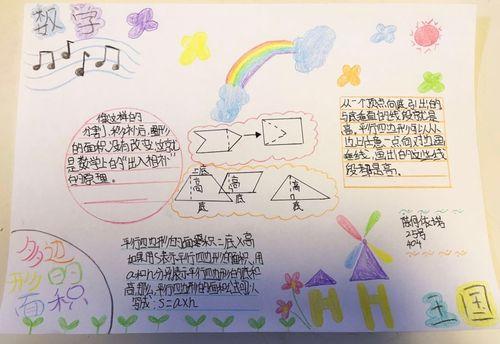 数学
像这样的
分割、移补后,图形
的面积没有改变,这就
是数学上的“出入相补”
的原理。
从一个顶点向底引出的
与底垂直的线段就是
高,平行四边形可以从
边上任意一点向对边画
垂线,画出的这些线
段都是高。
上底
高
高
高
底
底
底
多边
形的
面积
平行四边形的面积=底×高
如果用S表示平行四边形的面积,用
a和h分别表示平行四边形的底和
高,那么平行四边形的面积公式可以
写成:S=a×h
25号
404
王国